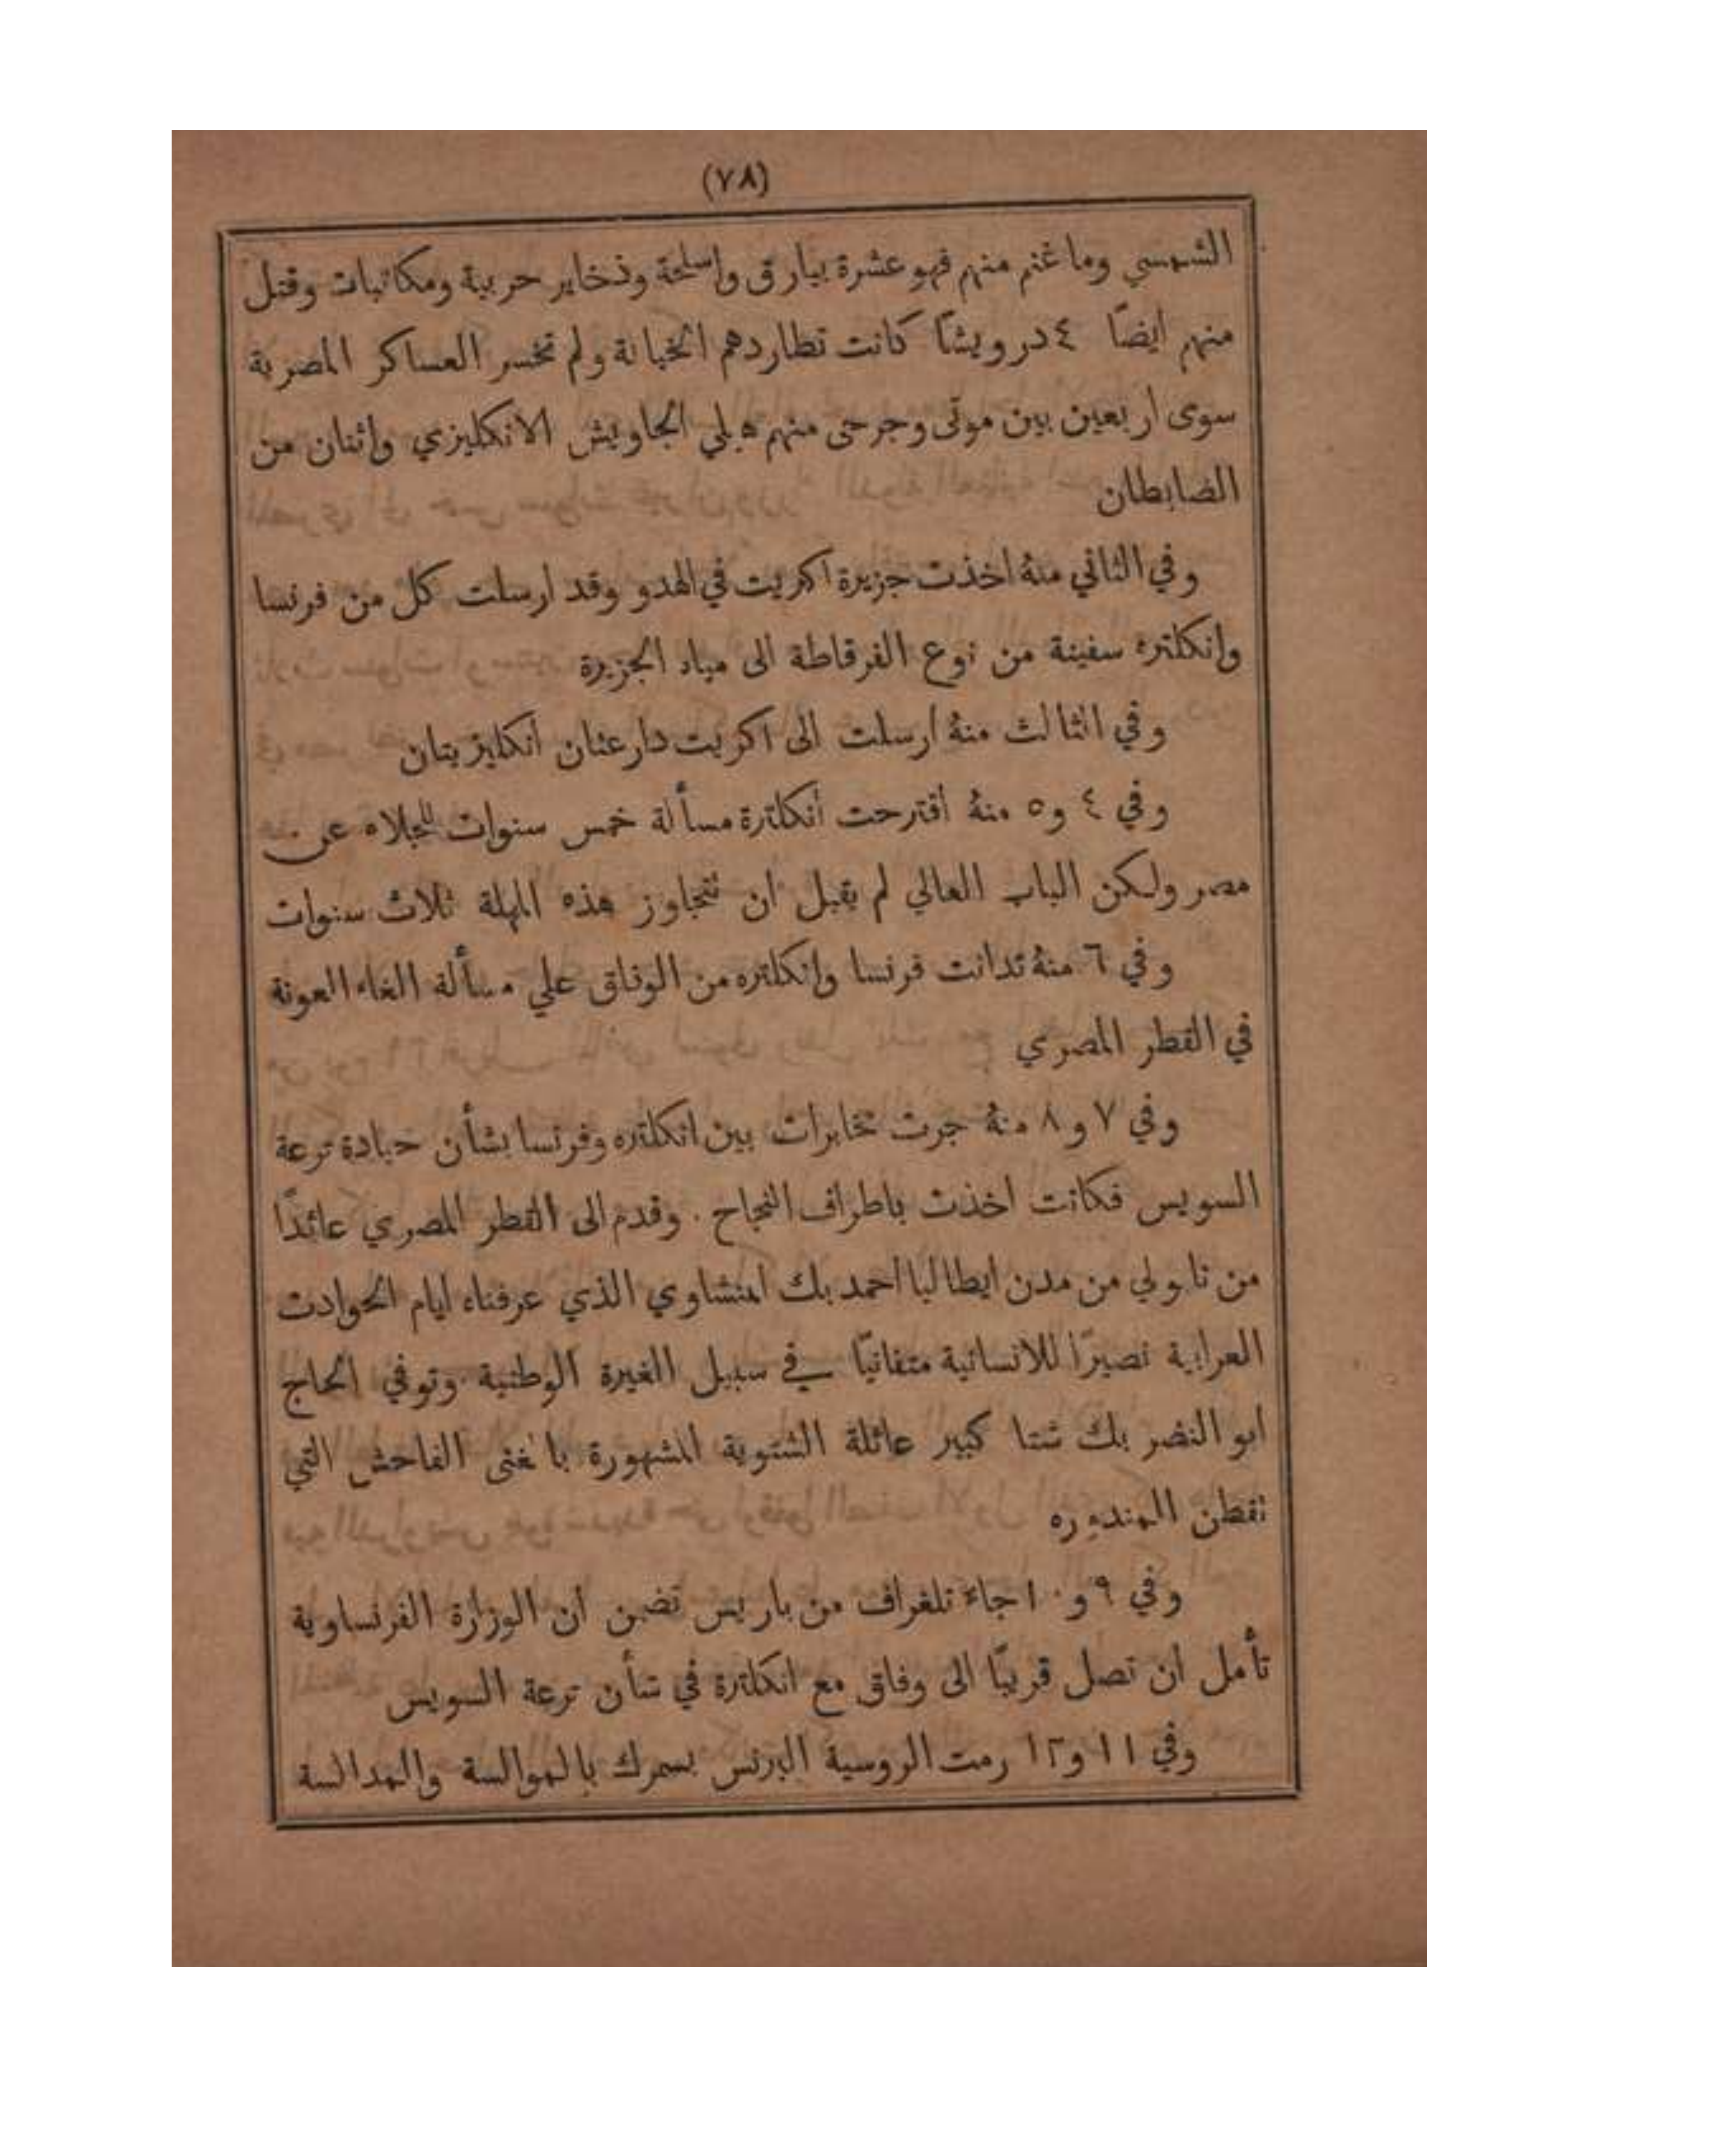 (٧٨)
الشمسي وما غنم منهم فهو عشرة بيارق واسلحة وذخاير حربية ومكاتبات وقتل
منهم ايضًا ٤ درويشًا كانت تطاردهم الخيالة ولم تخسر العساكر المصرية
سوى اربعين بين موتى وجرحى منهم هلي الجاويش الانكليزي واثنان من
الضابطان
وفي الثاني منهُ اخذت جزيرة اكريت في الهدو وقد ارسلت كل من فرنسا
وانكلتره سفينة من نوع الفرقاطة الى مياه الجزيرة
وفي الثالث منهُ ارسلت الى اكريت دارعتان انكليزيتان
وفي ٤ و٥ منهُ اقترحت انكلترة مسألة خمس سنوات للجلاء عن
مصر ولكن الباب العالي لم يقبل ان تتجاوز هذه المهلة ثلاث سنوات
وفي ٦ منهُ تدانت فرنسا وانكلتره من الوفاق علي مسألة الغاء العونة
في القطر المصري
وفي ٧ و٨ منهُ جرت مخابرات بين انكلتره وفرنسا بشأن حيادة ترعة
السويس فكانت اخذت باطراف النجاح . وقدم الى القطر المصري عائدًا
من نابولي من مدن ايطاليا احمد بك المنشاوي الذي عرفناه ايام الحوادث
العرابية نصيرًا للانسانية متفانيًا في سبيل الغيرة الوطنية . وتوفي الحاج
ابو النضر بك شتا كبير عائلة الشتوية المشهورة بالغنى الفاحش التي
تقطن المندوره
وفي ٩ و١٠ جاء تلغراف من باريس تضمن ان الوزارة الفرنساوية
تأمل ان تصل قريبًا الى وفاق مع انكلترة في شأن ترعة السويس
وفي ١١ و١٢ رمت الروسية البرنس بسمرك بالموالسة والمدالسة